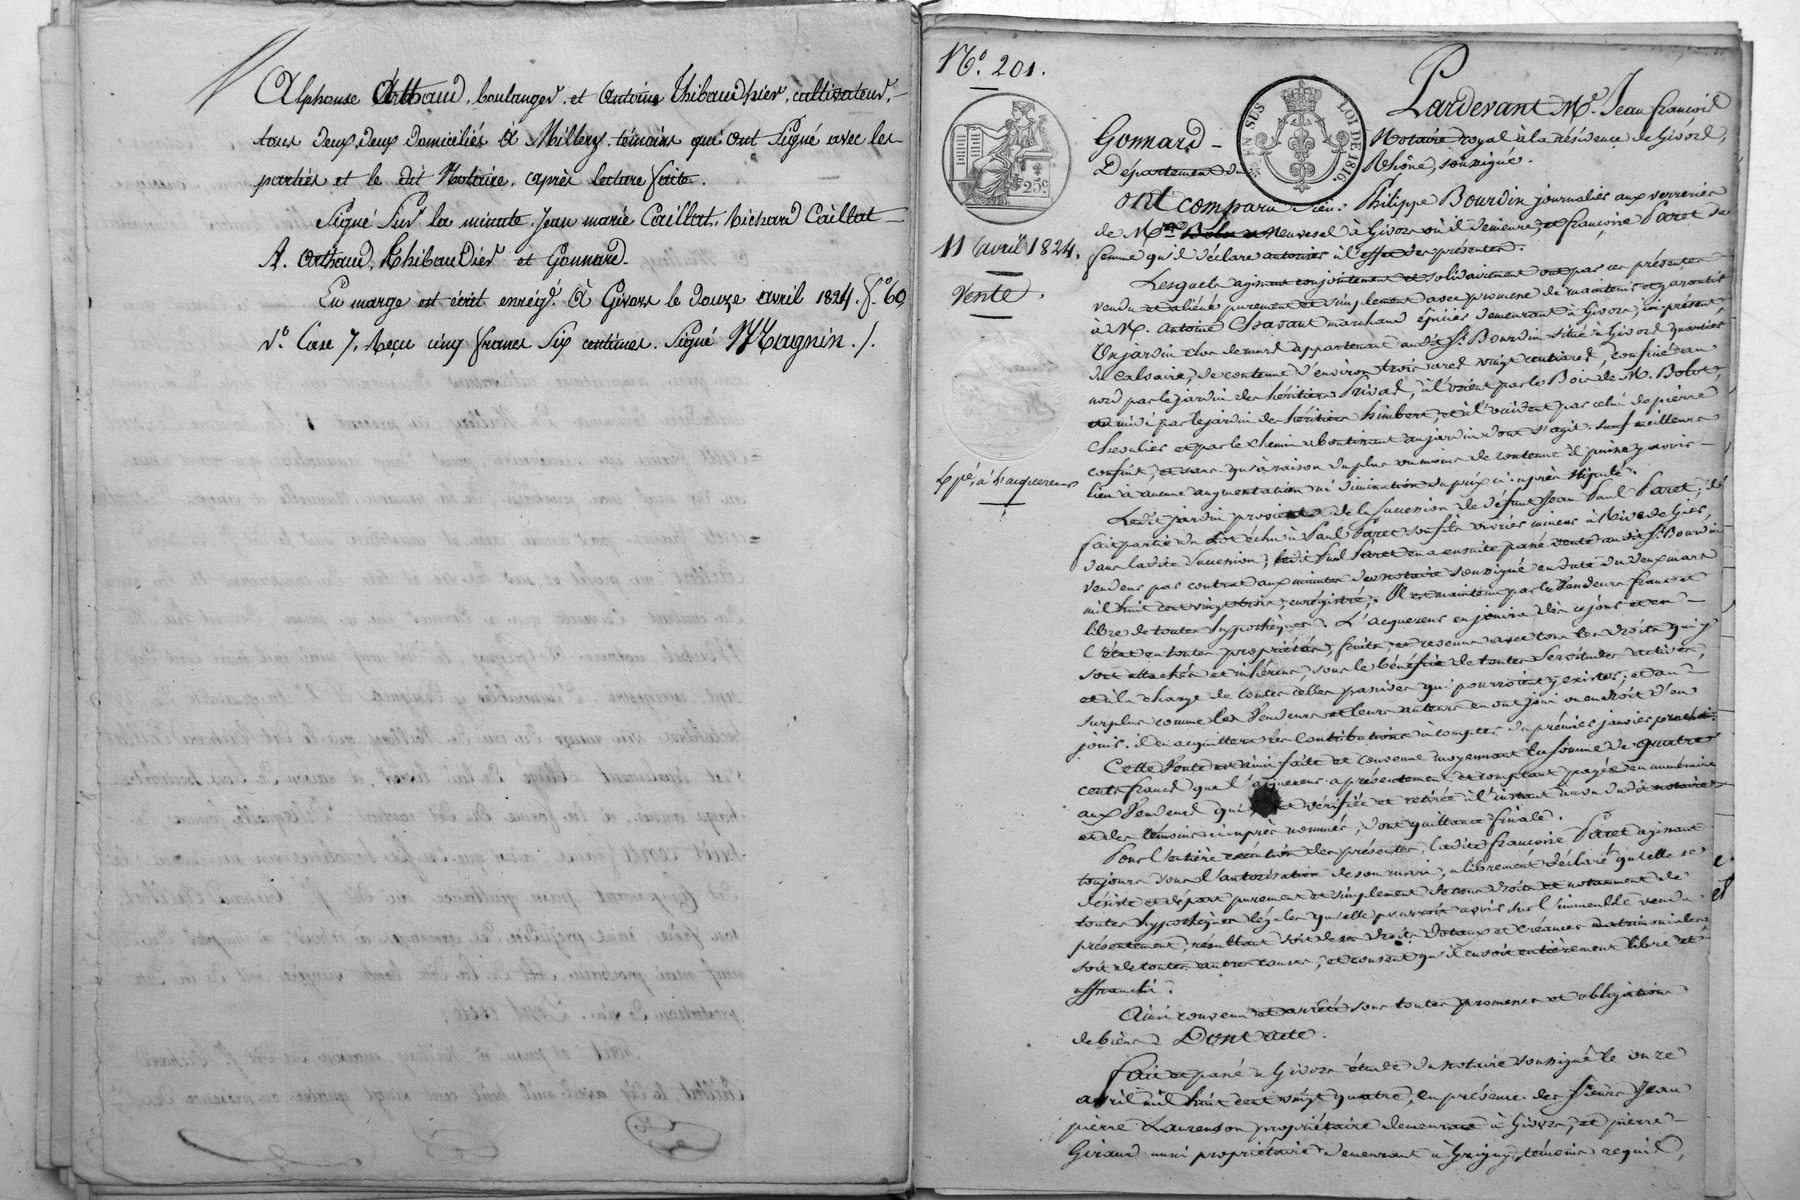 Alphonse Arthaud, boulanger, et Antoine Thibaudier, cultivateur,
tous deux, deux domiciliés à Millery, témoins qui ont signé avec les
parties et le dit Notaire, après lecture faite.
Signé sur la minute, Jean marie Caillat, Richard Caillat
A. Arthaud, Thibaudier et Gonnard.
En marge est écrit enrég.é à Givors le douze avril 1824. f.o 60
v.o Case 7, Reçu cinq francs six centimes. Signé Magnin ./.
N.o 201.
25c
EN SUS
LOI DE 1816.
11 avril 1824.
Vente.
Exp.é à l'acquéreur
Pardevant M.e Jean françois
Gonnard – Notaire royal à la résidence de Givors,
Département du Rhône, soussigné.
ont comparu Sieur Philippe Bourdin journalier aux verreries
de M.rs Neuvesel à Givors où il demeure, et françoise Paret sa
femme qu'il déclare autoriser à l'effet des présentes.
Lesquels agissant conjointement et solidairement ont par ces présentes
vendu et aliéné purement et simplement avec promesse de maintenir et garantir
à M. Antoine Chavant marchand épicier demeurant à Givors, ici présent,
Un jardin clos de murs appartenant audit S.r Bourdin situé à Givors quartier
du Calvaire, de contenue d'environ trois ares vingt centiares, confiné au
nord par le jardin des héritiers Privas, à l'orient par le Bois de M. Bolot,
au midi par le jardin des héritiers himbert, et à l'occident par celui de pierre
Chevalier et par le chemin aboutissant au jardin dont s'agit. Sauf meilleurs
confins, et sans qu'à raison du plus ou moins de contenue il puisse y avoir
lieu à aucune augmentation ni diminution du prix ci-après stipulé.
Ledit jardin provient de la Succession de défunt Jean Paul Paret, il
fait partie du Lot échu à Paul Paret son fils ouvrier mineur à Rive de Gier,
dans ladite Succession; ledit Paul Paret en a ensuite passé vente au dit S.r Bourdin
vendeur par contrat aux minutes du notaire soussigné en date du deux mars
mil huit cent vingt trois, enregistré. Il est maintenu par les Vendeurs franc et
libre de toutes hypothèques. L'acquéreur en jouira dès ce jour et en
l'état en toutes propriétés, fruits et revenus avec tous les droits qui y
sont attachés et inhérens, sous le bénéfice de toutes servitudes actives,
et à la charge de toutes celles passives qui pourroient y exister, et au
surplus comme les Vendeurs et leurs auteurs en ont joui ou eu droit d'en
jouir. il en acquittera les contributions à compter du premier janvier prochain.
Cette Vente est ainsi faite et convenue moyennant la somme de quatre
cents francs que l'acquéreur a présentement et comptant payée en numéraire
aux Vendeurs qui l'ont vérifiée et retirée à l'instant au vu du dit notaire
et des témoins ci après nommés, dont quittance finale.
Pour l'entière exécution des présentes, ladite françoise Paret agissant
toujours sous l'autorisation de son mari, a librement déclaré qu'elle se
désiste et départ purement et simplement de tous droits et notamment de
toutes hypothèques légales qu'elle pourroit avoir sur l'immeuble vendu
présentement, résultant soit de ses droits dotaux et créances matrimoniales
soit de toutes autres causes, et consent qu'il en soit entièrement libre et
affranchi.
Ainsi convenu et arrêté sous toutes promesses et obligations
de biens Dont acte.
Fait et passé à Givors étude du notaire soussigné le onze
avril mil huit cent vingt quatre, en présence des Sieurs Jean
pierre Laurenson propriétaire demeurant à Givors, et pierre
Giraud aussi propriétaire demeurant à Grigny, témoins requis,